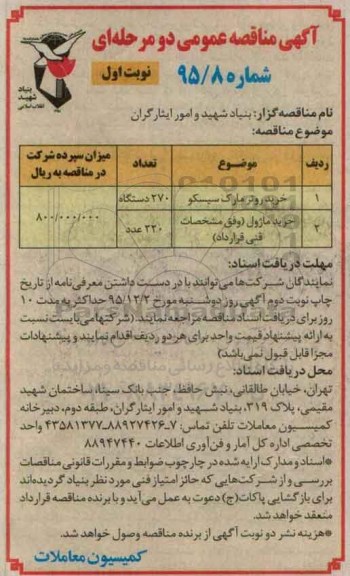 آگهی مناقصه عمومی دو مرحله‌ای
شماره ۹۵/۸
نوبت اول
بنیاد
شهید
انقلاب اسلامی
نام مناقصه‌گزار: بنیاد شهید و امور ایثارگران
موضوع مناقصه:
ردیف موضوع تعداد میزان سپرده شرکت
در مناقصه به ریال
۱ خرید روتر مارک سیسکو ۲۷۰ دستگاه
۸۰۰/۰۰۰/۰۰۰
۲ خرید ماژول (وفق مشخصات
فنی قرارداد) ۲۲۰ عدد
مهلت دریافت اسناد:
نمایندگان شرکت‌ها می‌توانند با در دست داشتن معرفی‌نامه از تاریخ
چاپ نوبت دوم آگهی روز دوشنبه مورخ ۹۵/۱۲/۲ حداکثر به مدت ۱۰
روز برای دریافت اسناد مناقصه مراجعه نمایند. (شرکتها می‌بایست نسبت
به ارائه پیشنهاد قیمت واحد برای هر دو ردیف اقدام نمایند و پیشنهادات
مجزا قابل قبول نمی‌باشد)
محل دریافت اسناد:
تهران، خیابان طالقانی، نبش حافظ، جنب بانک سپه، ساختمان شهید
مقیمی، پلاک ۳۱۹، بنیاد شهید و امور ایثارگران، طبقه دوم، دبیرخانه
کمیسیون معاملات تلفن تماس: ۷-۸۸۹۲۷۴۲۶-۴۳۵۸۱۳۷۷ واحد
تخصصی اداره کل آمار و فن‌آوری اطلاعات ۸۸۹۴۷۴۴۰
*اسناد و مدارک ارایه شده در چارچوب ضوابط و مقررات قانونی مناقصات
بررسی و از شرکت‌هایی که حائز امتیاز فنی مورد نظر بنیاد گردیده‌اند
برای بازگشایی پاکات(ج) دعوت به عمل می‌آید و با برنده مناقصه قرارداد
منعقد خواهد شد.
*هزینه نشر دو نوبت آگهی از برنده مناقصه وصول خواهد شد.
کمیسیون معاملات